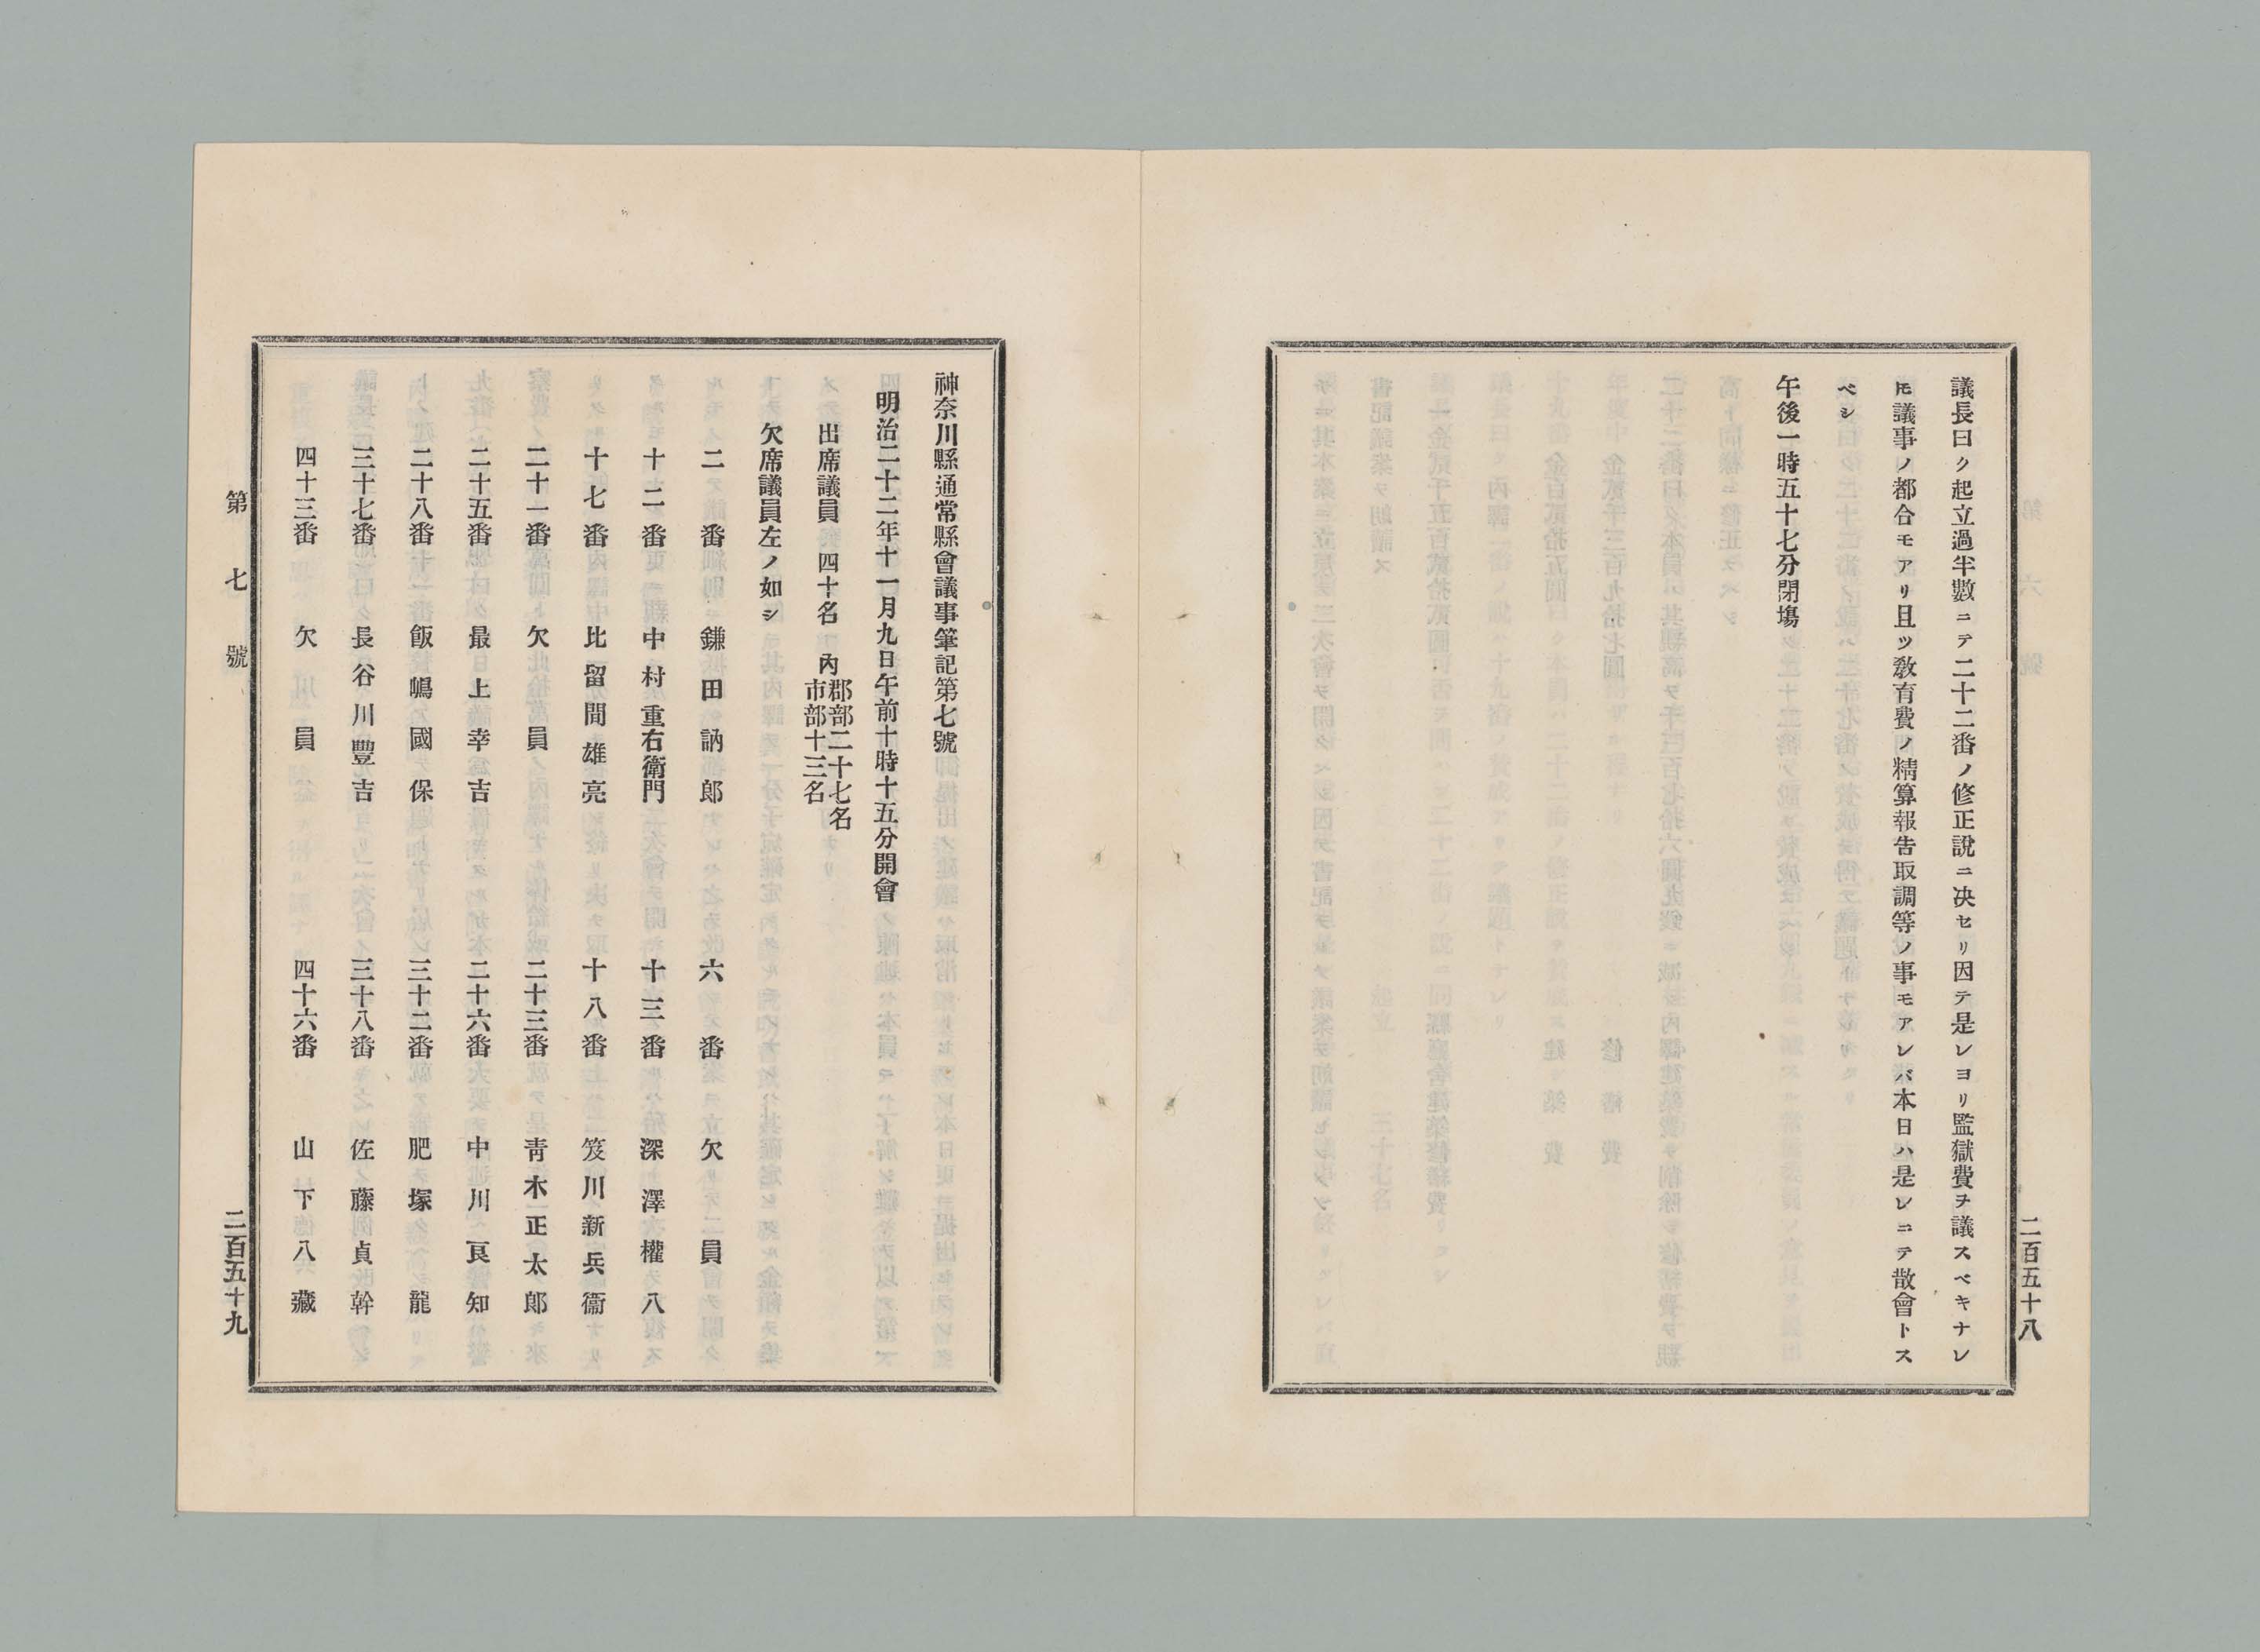 二百五十八
議長曰ク起立過半數ニテ二十二番ノ修正說ニ決セリ因テ是レヨリ監獄費ヲ議スベキナレ
𪜈議事ノ都合モアリ且ツ敎育費ノ精算報告取調等ノ事モアレバ本日ハ是レニテ散會トス
ベシ
午後一時五十七分閉塲
神奈川縣通常縣會議事筆記第七號
明治二十二年十一月九日午前十時十五分開會
出席議員 四十名 內 郡部二十七名
市部十三名
欠席議員左ノ如シ
二番 鎌田訥郞 六番 欠員
十二番 中村重右衞門 十三番 深澤權八
十七番 比留間雄亮 十八番 笈川新兵衞
二十一番 欠員 二十三番 靑木正太郞
二十五番 最上幸吉 二十六番 中川良知
二十八番 飯嶋國保 三十二番 肥塚龍
三十七番 長谷川豐吉 三十八番 佐藤貞幹
四十三番 欠員 四十六番 山下八藏
第七號
二百五十九